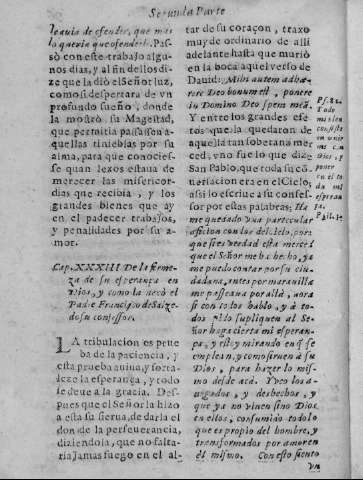 Segunda Parte
le auia de ofender, que mas
lo queria que ofenderle. Pas-
sò con este trabajo algu-
nos dias, y al fin dellos di-
ze que la dio el Señor luz,
como si despertara de vn
profundo sueño, donde
la mostrò su Magestad,
que permitia passassen a-
quellas tinieblas por su
alma, para que conocies-
se quan lexos estaua de
merecer las misericor-
dias que recibia, y los
grandes bienes que ay
en el padecer trabajos,
y penalidades por su a-
mor.
Cap. XXXIII De la firme-
za de su esperança en
Dios, y como la negò el
Padre Francisco de Salze-
do su confessor.
LA tribulacion es prue
ba de la paciencia, y
esta prueba auiua, y for ta-
leze la esperança, y todo
se deue a la gracia. Des-
pues que el Señor la hizo
a esta su sierua, de darla el
don de la perseuerancia,
diziendola, que no falta-
ria jamas fuego en el al-
tar de su coraçon, traxo
muy de ordinario de alli
adelante hasta que muriò
en la boca aquel verso de
Dauid: Mihi autem adhæ-
rere Deo bonum est, ponere
in Domino Deo spem meã.
Y entre los grandes efe-
tos que la quedaron de
aquella tan soberana mer
ced, vno fue lo que dize
San Pablo, que toda su cõ
uersacion era en el Cielo,
assi lo escriue a su confes-
sor por estas palabras: Ha
me quedado vna particular
aficion con los del cielo, por
que si es verdad esta merced
que el Señor me ha hecho, ya
me puedo contar por su ciu-
dadana, antes por marauilla
me passeaua por allà, aora
si con todos hablo, y à to-
dos pido supliquen al Se-
ñor haga cierta mi esperan-
ça, y estoy mirando en q̃ se
emplean, y como siruen à su
Dios, para hazer lo mis-
mo desde acà. Veo los a-
negados, y deshechos, y
que ya no viuen sino Dios
en ellos, consumido todo lo
que es propio del hombre, y
transformados por amor en
èl mismo. Con esto siento
vn
Ps. 82.
Philip. 3.